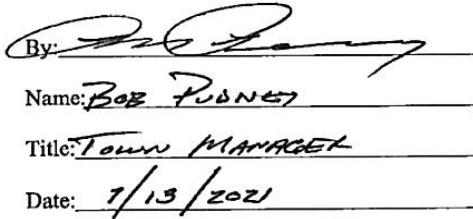 By:
Name: BOB PUDNEY
Title: TOWN MANAGER
Date: 7/13/2021